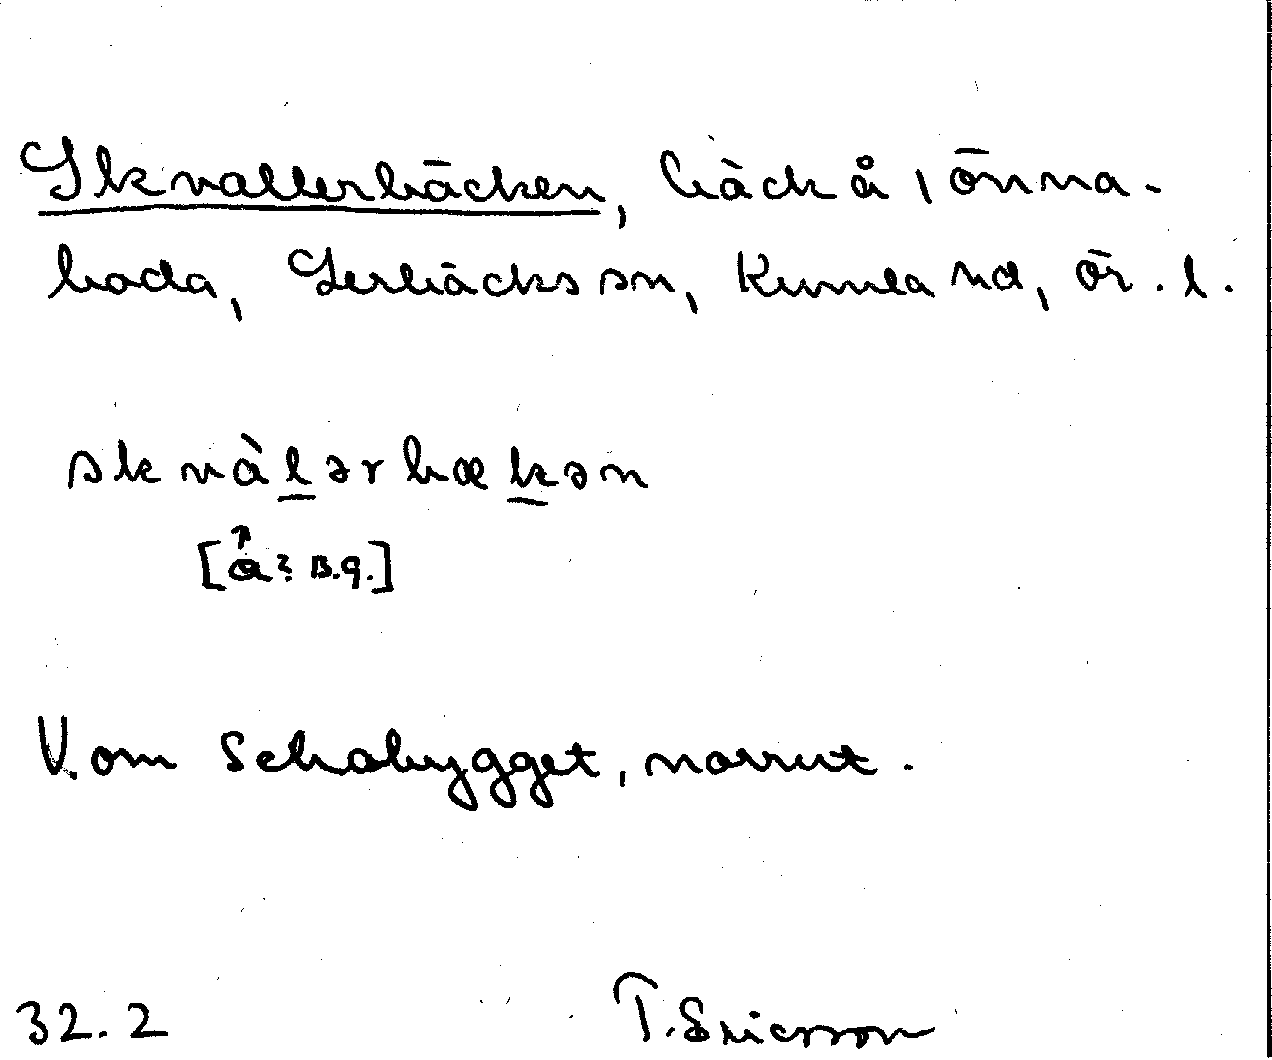 Skvallerbäcken, bäck å 1 Önna-
boda, Lerbäcks sn, Kumla hd, Ör. l.
skvàlərbækən
[å? B.g.]
V. om Schabygget, norrut.
32.2 T. Ericsson